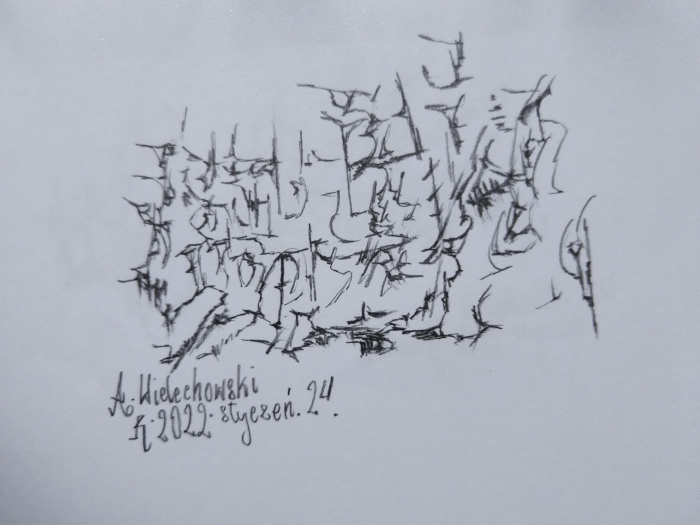 A. Wielechowski
R. 2022. styczeń. 24.